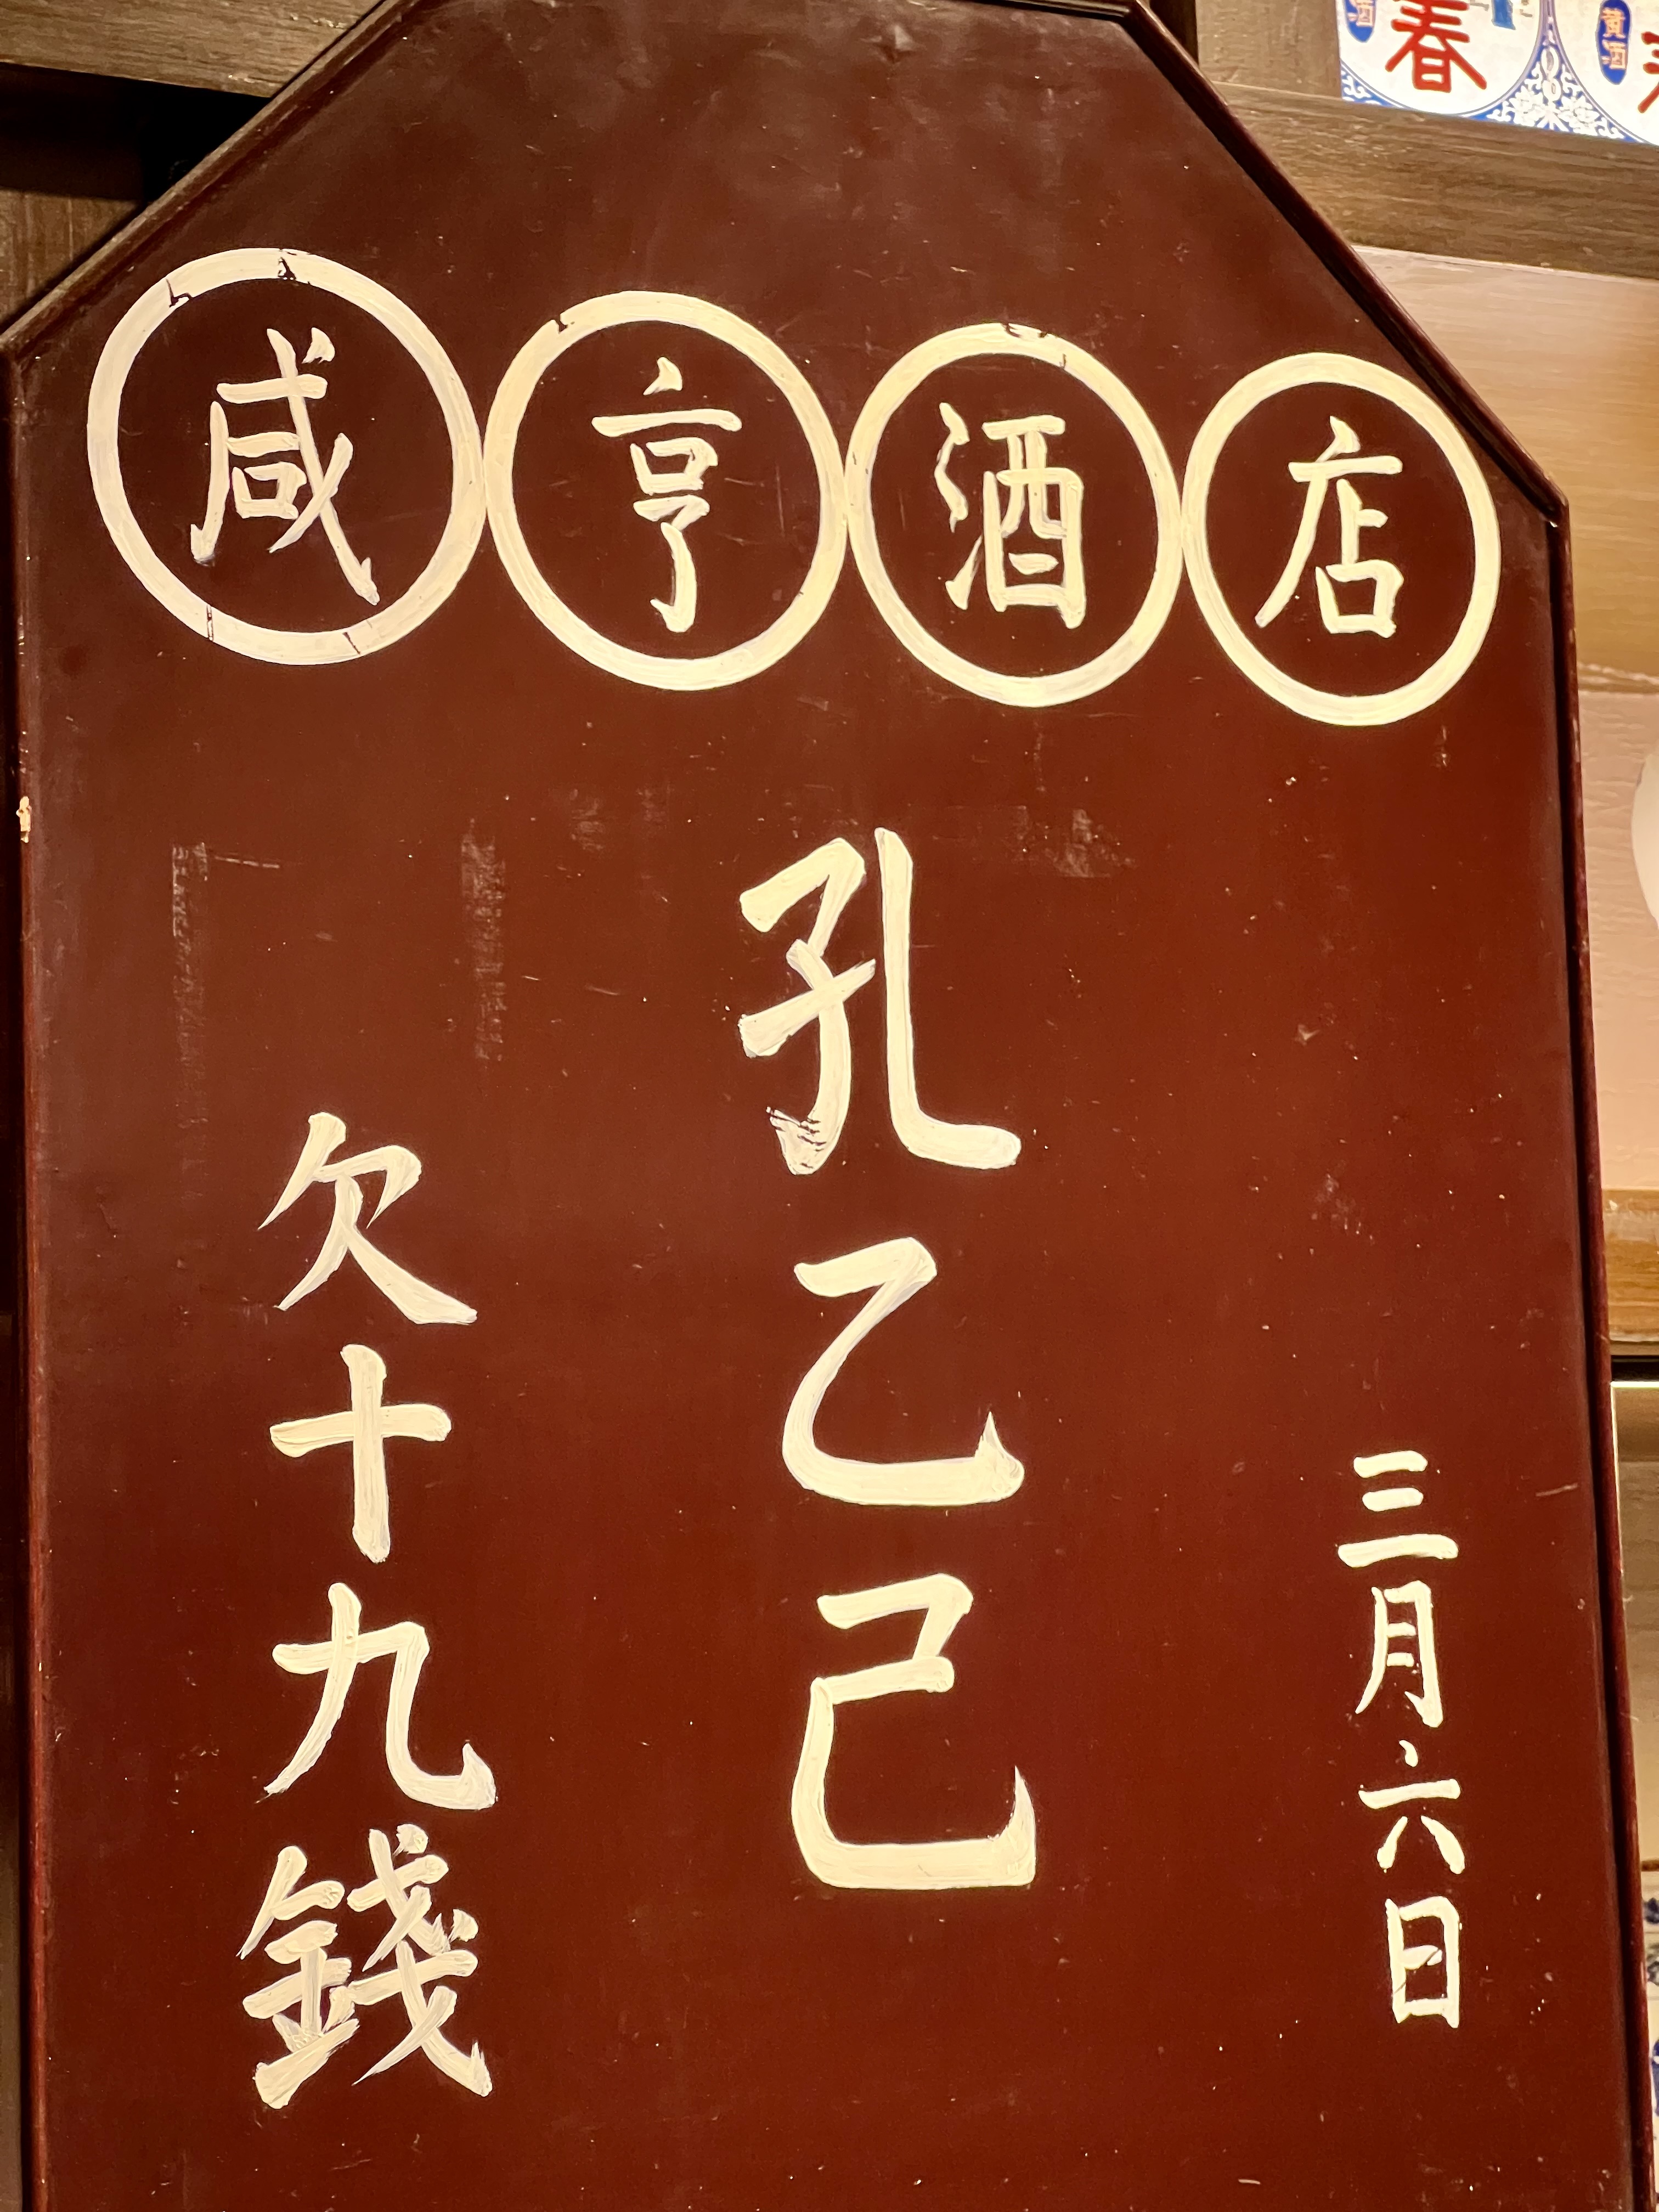 咸亨酒店
三月六日
孔乙己
欠十九錢
春
黄酒
酒